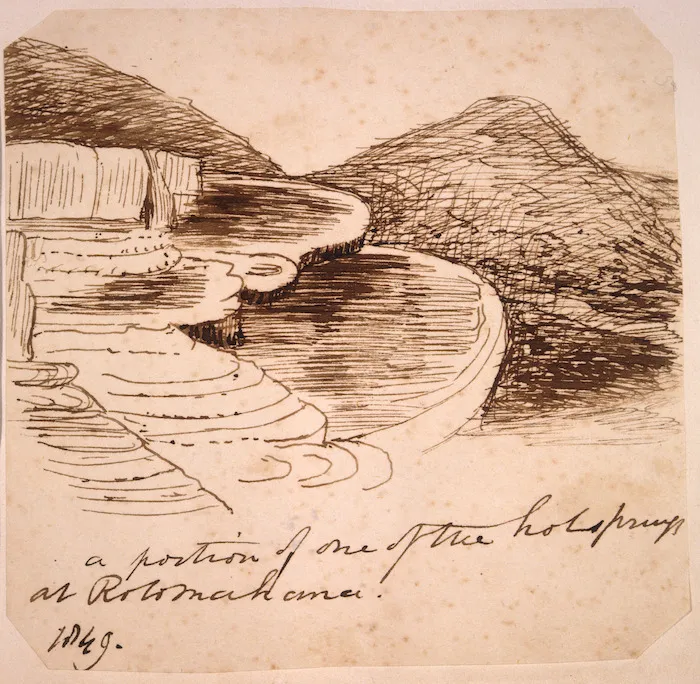 a portion of one of the hot springs
at Rotomahana.
1849.